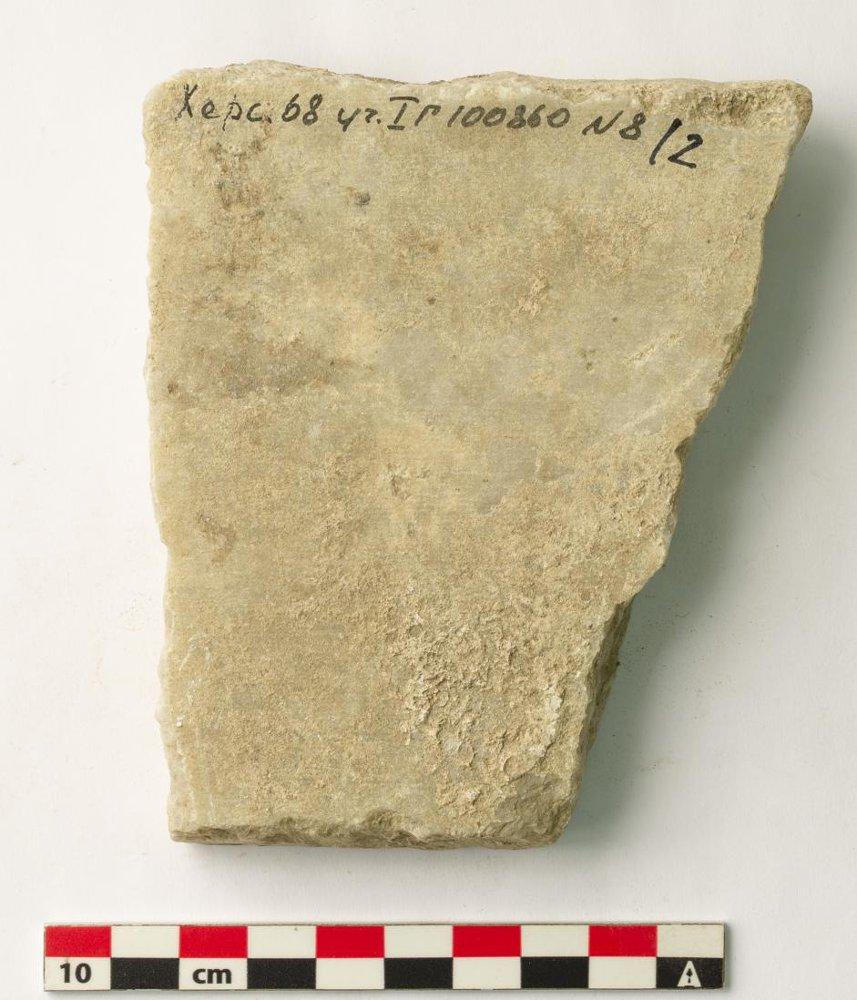 Херс. 68 уч. I Г 100860 N 8/2
10 cm
A